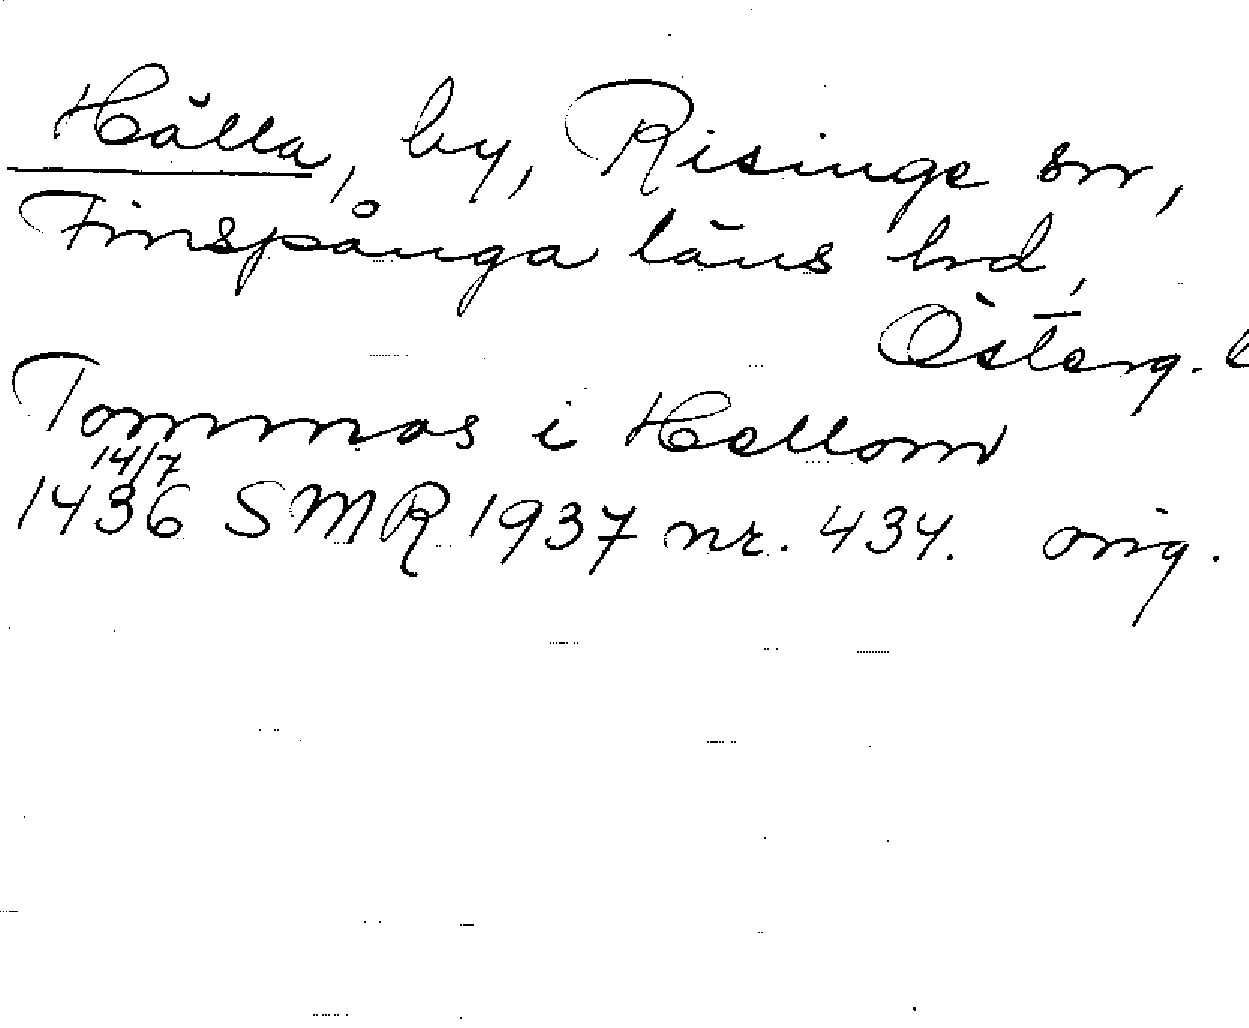 Hälla, by, Risinge sn,
Finspånga läns hrd,
Österg. l
Tommos i Hellom
14/7
1436 SMR 1937 nr. 434. orig.